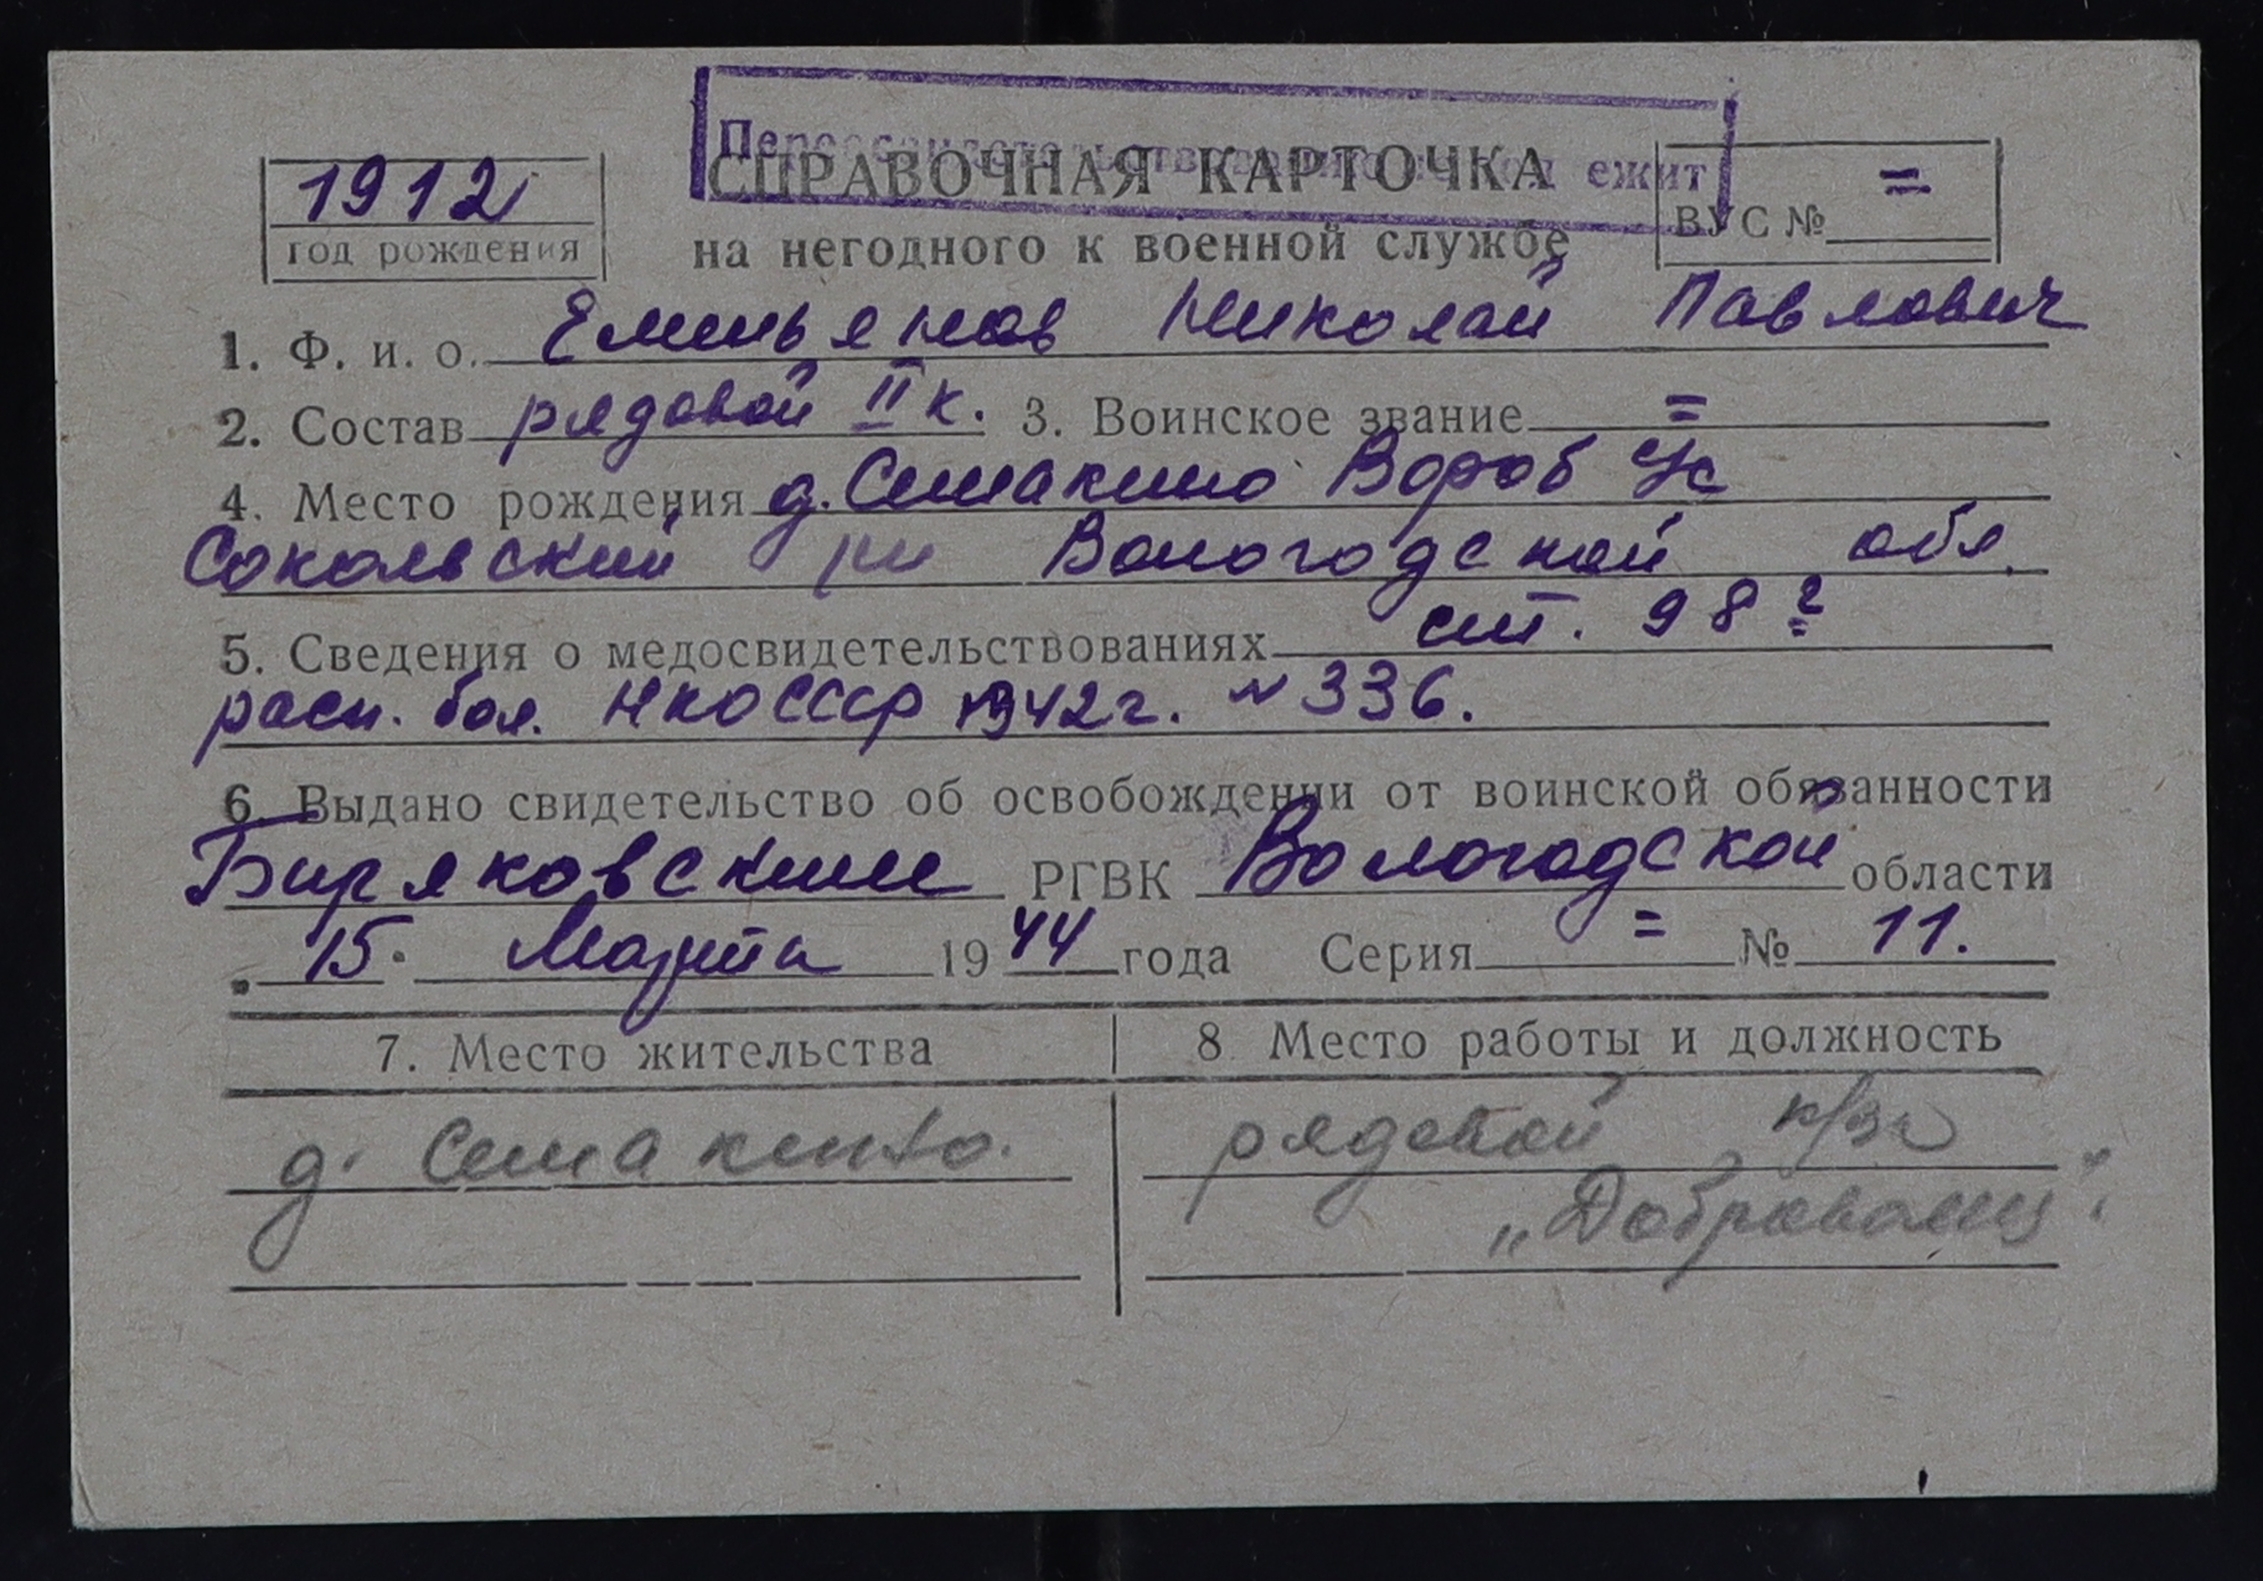 СПРАВОЧНАЯ КАРТОЧКА
на негодного к военной службе
1912
год рождения
ВУС № =
1. Ф. и. о. Емельянов Николай Павлович
2. Состав рядовой II к. 3. Воинское звание =
4. Место рождения д. Семакино Вороб с/с
Сокольский рн Вологодской обл.
5. Сведения о медосвидетельствованиях ст. 98 г
расп. бол. НКО СССР 1942 г. № 336.
6. Выдано свидетельство об освобождении от воинской обязанности
Биряковским РГВК Вологодской области
15. Марта 1944 года Серия = № 11.
7. Место жительства
8 Место работы и должность
д. Семакино.
рядовой к/за
"Доброволец".